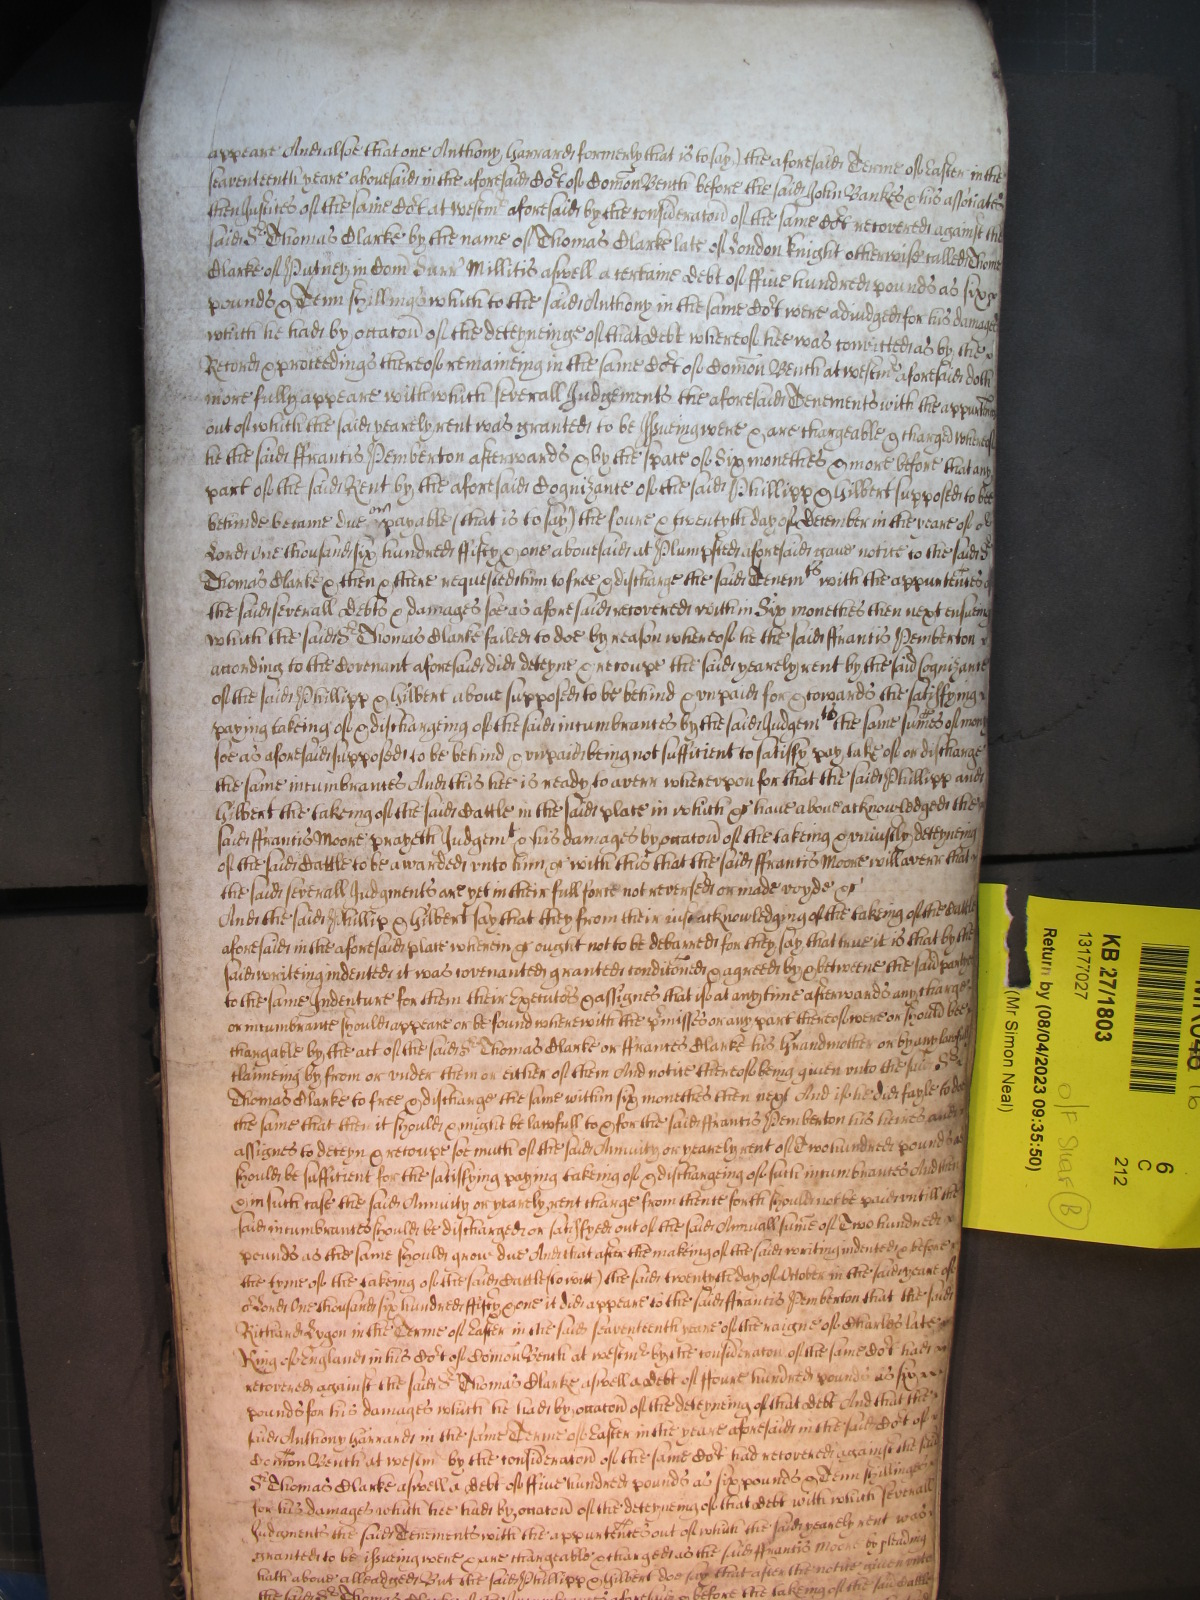 appeare And alsoe that one Anthony Garrard formerly (that is to say) the aforesaid Terme of Easter in the
seaventeenth yeare abovesaid in the aforesaid Co:t of Com̄on Bench before the said John Bankes & his associates
then Justices of the same Co:t at westm̄ aforesaid by the consideracōn of the same Co:t recovered against the
said S:r Thomas Clarke by the name of Thomas Clarke late of London knight otherwise called Thome
Clarke of Putney in Com̄ Surr' Millitis aswell a certaine debt of ffive hundred pounds as six
pounds & Tenn shillings which to the said Anthony in the same Co:t were adiudged for his damages
which he had by occacōn of the deteyneinge of that debt whereof hee was convicted as by the
Record & proceedings thereof remaineing in the same Co:t of Com̄on Bench at westm̄ aforesaid doth
more fully appeare with which severall Judgements the aforesaid Tenements with the appurten
out of which the said yearely rent was granted to be Issueing were & are chargeable & charged whereof
he the said ffrancis Pemberton afterwards & by the space of Six monethes & more before that any
part of the said Rent by the aforesaid Cognizance of the said Phillipp & Gilbert supposed to bee
behinde became due or payable (that is to say) the foure & twentyth day of December in the yeare of o:r
Lord One thousand six hundred ffifty & one abovesaid at Plumpsted aforesaid gave notice to the said S:r
Thomas Clarke & then & there requested him to free & discharge the said Tenem:ts with the appurten̄ces of
the said severall debts & damages soe as aforesaid recovered within Six monethes then next ensueing
which the said S:r Thomas Clarke failed to doe by reason whereof he the said ffrancis Pemberton
according to the Covenant aforesaid did deteyne & recoupe the said yearely rent by the said Cognizance
of the said Phillipp & Gilbert above supposed to be behind & vnpaid for & towards the satisfying
paying takeing of & dischargeing of the said incumbrances by the said Judgem:ts the same sum̄es of mony
soe as aforesaid supposed to be behind & vnpaid being not sufficient to satisfy pay take of or discharge
the same incumbrances And this hee is ready to averr wherevpon for that the said Phillipp and
Gilbert the takeing of the said Cattle in the said place in which &c have above acknowledged the
said ffrancis Moore prayeth Judgem:t & his damages by occacōn of the takeing & vniustly deteyneing
of the said Cattle to be awarded vnto him &c with this that the said ffrancis Moore will averr that
the said severall Judgments are yet in their full force not reversed or made voyde &c
And the said Phillip & Gilbert say that they from their iust acknowledging of the takeing of the Cattle
aforesaid in the aforesaid place wherein &c ought not to be debarred for they say that true it is that by the
said writeing indented it was covenanted granted condicōned & agreed by & betweene the said partyes
to the same Indenture for them their Executors & assignes that if at any time afterwards any charge
or incumbrance should appeare or be found wherewith the p:rmisses or any part thereof were or should bee
chargable by the act of the said S:r Thomas Clarke or ffrances Clarke his Grandmother or by any
claimeing by from or vnder them or either of them And notice thereof being given vnto the said S:r
Thomas Clarke to free & discharge the same within six monethes then next And if he did fayle to doe
the same that then it should & might be lawfull to & for the said ffrancis Pemberton his heires and
assignes to deteyn & recoupe soe much of the said Annuity or yearely rent of Two hundred pounds as
should be sufficient for the satisfying paying takeing of & dischargeing of such incumbrances And then
& in such case the said Annuity or yearely rent charge from thence forth should not be paid vntill the
said incumbrances should be discharged or satisfyed out of the said Annuall sum̄e of Two hundred
pounds as the same should grow due And that after the makeing of the said writing indented & before
the tyme of the takeing of the said Cattle (to witt) the said twentyth day of October in the said yeare of
o:r Lord One thousand six hundred ffifty & one it did appeare to the said ffrancis Pemberton that the said
Richard Lygon in the Terme of Easter in the said seaventeenth yeare of the raigne of Charles late
King of England in his Co:t of Com̄on Bench at westm̄ by the consideracōn of the same Co:t had
recovered against the said S:r Thomas Clarke aswell a debt of ffoure hundred pounds as six
pounds for his damages which he had by occacōn of the deteyneing of that debt And that the
said Anthony Garrard in the same Terme of Easter in the yeare aforesaid in the said Co:t of
Com̄on Bench at westm̄ by the consideracōn of the same Co:t had recovered against the said
S:r Thomas Clarke aswell a debt of ffive hundred pounds as six pounds & Tenn shillinges
for his damages which hee had by occacōn of the deteyneing of that debt with which severall
Judgments the said Tenements with the appurten̄ces out of which the said yearely rent was
granted to be issueing were & are chargeable & charged as the said ffrancis Moore by pleading
hath above alleadged But the said Phillipp & Gilbert doe say that after the notice given vnto
the said S:r Thomas Clarke of the incumbrances aforesaid & before the takeing of the said Cattle
KB 27/1803
13177027
Return by (08/04/2023 09:35:50)
(Mr Simon Neal)
6
C
212
O/F Shelf B